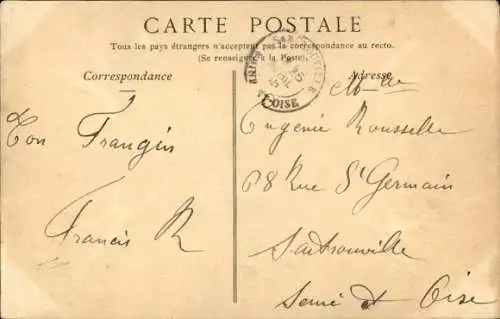 CARTE POSTALE
Tous les pays étrangers n'acceptent pas la correspondance au recto.
(Se renseigner à la Poste).
Correspondance
Ton Frangin
Francis R
Adresse
SARTROUVILLE
ET-OISE
Mlle
Eugenie Rousselle
68 Rue St Germain
Sartrouville
Seine et Oise